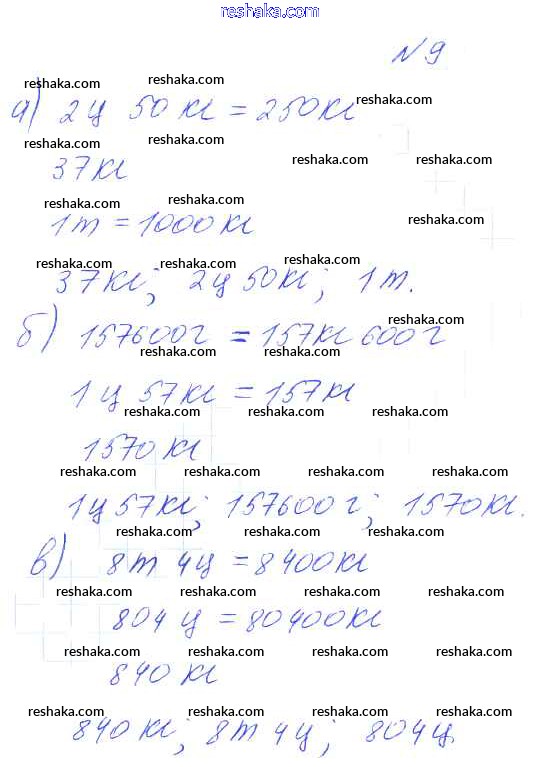 reshaka.com
№9
reshaka.com reshaka.com
а) 2ц 50кг = 250кг
reshaka.com
reshaka.com reshaka.com
37кг
reshaka.com reshaka.com
reshaka.com reshaka.com
1т = 1000кг
reshaka.com
reshaka.com reshaka.com reshaka.com
37кг; 2ц 50кг; 1т.
reshaka.com
б) 157600г = 157кг 600г
reshaka.com reshaka.com
1ц 57кг = 157кг
reshaka.com reshaka.com reshaka.com
1570кг
reshaka.com reshaka.com reshaka.com reshaka.com
1ц 57кг; 157600г; 1570кг.
reshaka.com reshaka.com reshaka.com
в) 8т 4ц = 8400кг
reshaka.com reshaka.com reshaka.com reshaka.com
804ц = 80400кг
reshaka.com reshaka.com reshaka.com reshaka.com
840кг
reshaka.com reshaka.com reshaka.com reshaka.com
840кг; 8т 4ц; 804ц